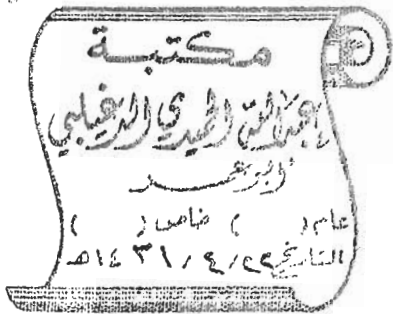 مكتبة
عبدالله الحميدي
ابو
عام ( ) خاص ( )
التاريخ ٢٢ / ٤ / ١٤٣١هـ